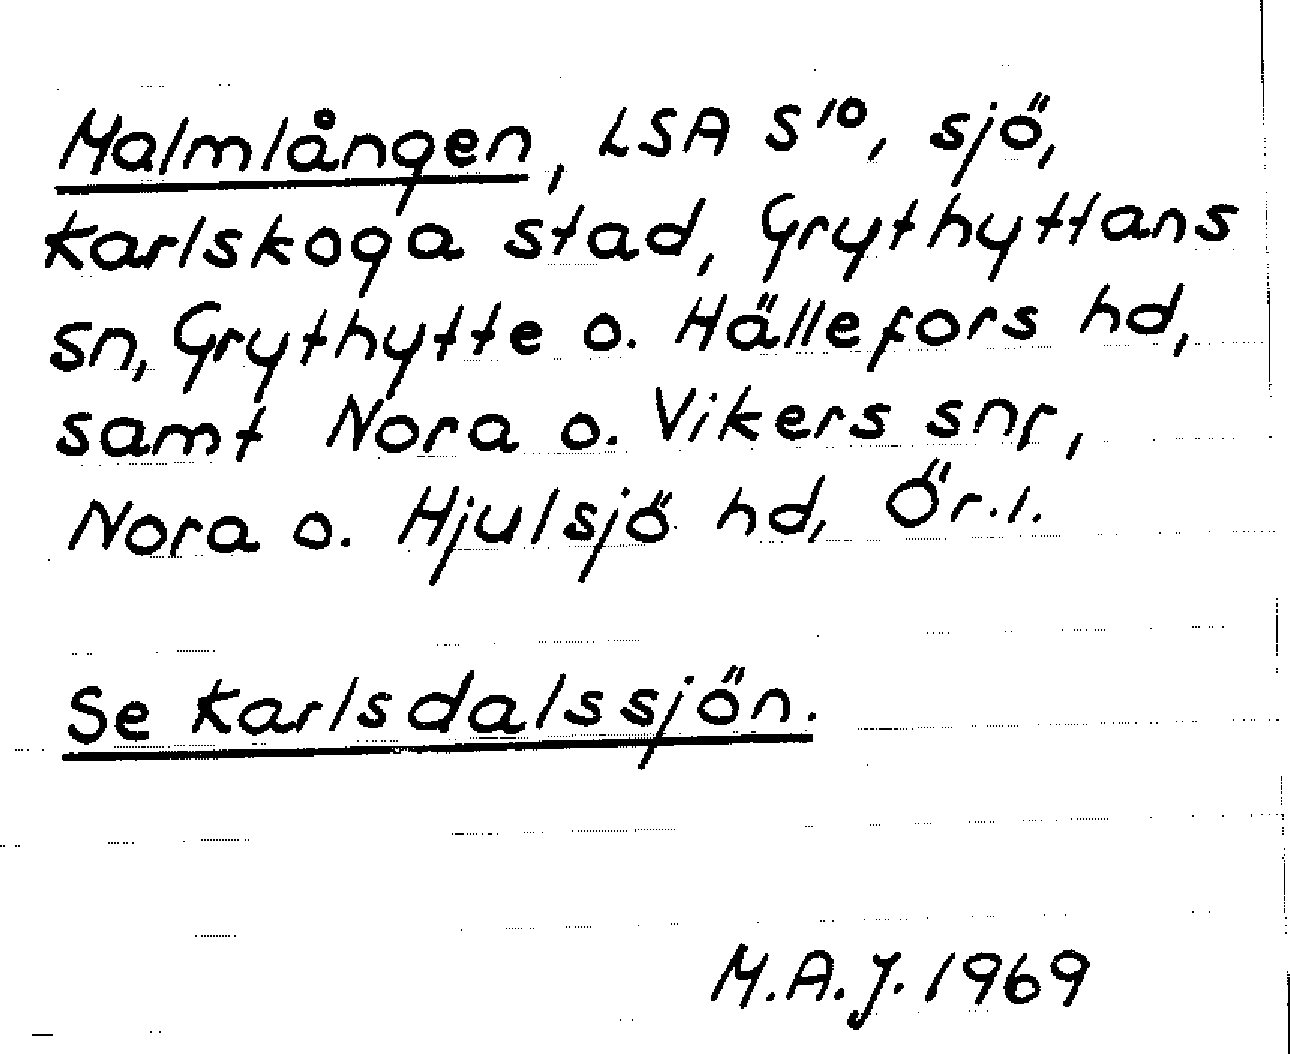 Malmlången, LSA S10, sjö,
Karlskoga stad, Grythyttans
sn, Grythytte o. Hällefors hd,
samt Nora o. Vikers snr,
Nora o. Hjulsjö hd, Ör.l.
Se Karlsdalssjön.
M.A.J. 1969